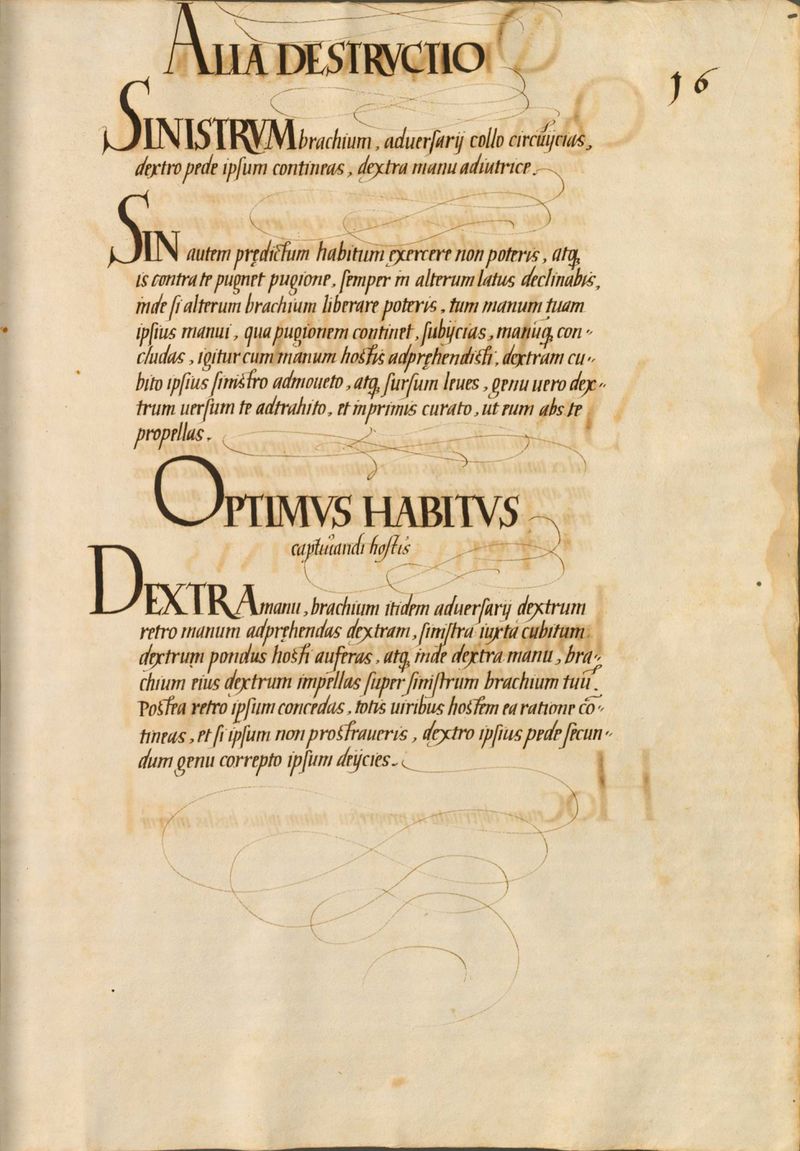 ALIA DESTRVCTIO
16
SINISTRVM brachium, aduerſarij collo circũijcias,
dextro pede ipſum contineas, dextra manu adiutrice.
SIN autem prędictum habitum exercere non poteris, atq;
is contra te pugnet pugione, ſemper in alterum latus declinabis,
inde ſi alterum brachium liberare poteris, tum manum tuam
ipſius manui, qua pugionem continet, ſubijcias, manuq; con-
cludas, igitur cum manum hostis adpręhendisti, dextram cu-
bito ipſius ſinistro admoueto, atq; ſurſum leues, genu uero dex-
trum uerſum te adtrahito, et inprimis curato, ut eum abs te
propellas.
OPTIMVS HABITVS
captiuandi hoſtis
DEXTRA manu, brachium itidem aduerſarij dextrum
retro manum adpręhendas dextram, ſiniſtra iuxta cubitum
dextrum pondus hosti auferas, atq; inde dextra manu, bra-
chium eius dextrum impellas ſuper ſiniſtrum brachium tuũ.
Postea retro ipſum concedas, totis uiribus hostem ea ratione cõ-
tineas, et ſi ipſum non prostraueris, dextro ipſius pede ſecun-
dum genu correpto ipſum deijcies.